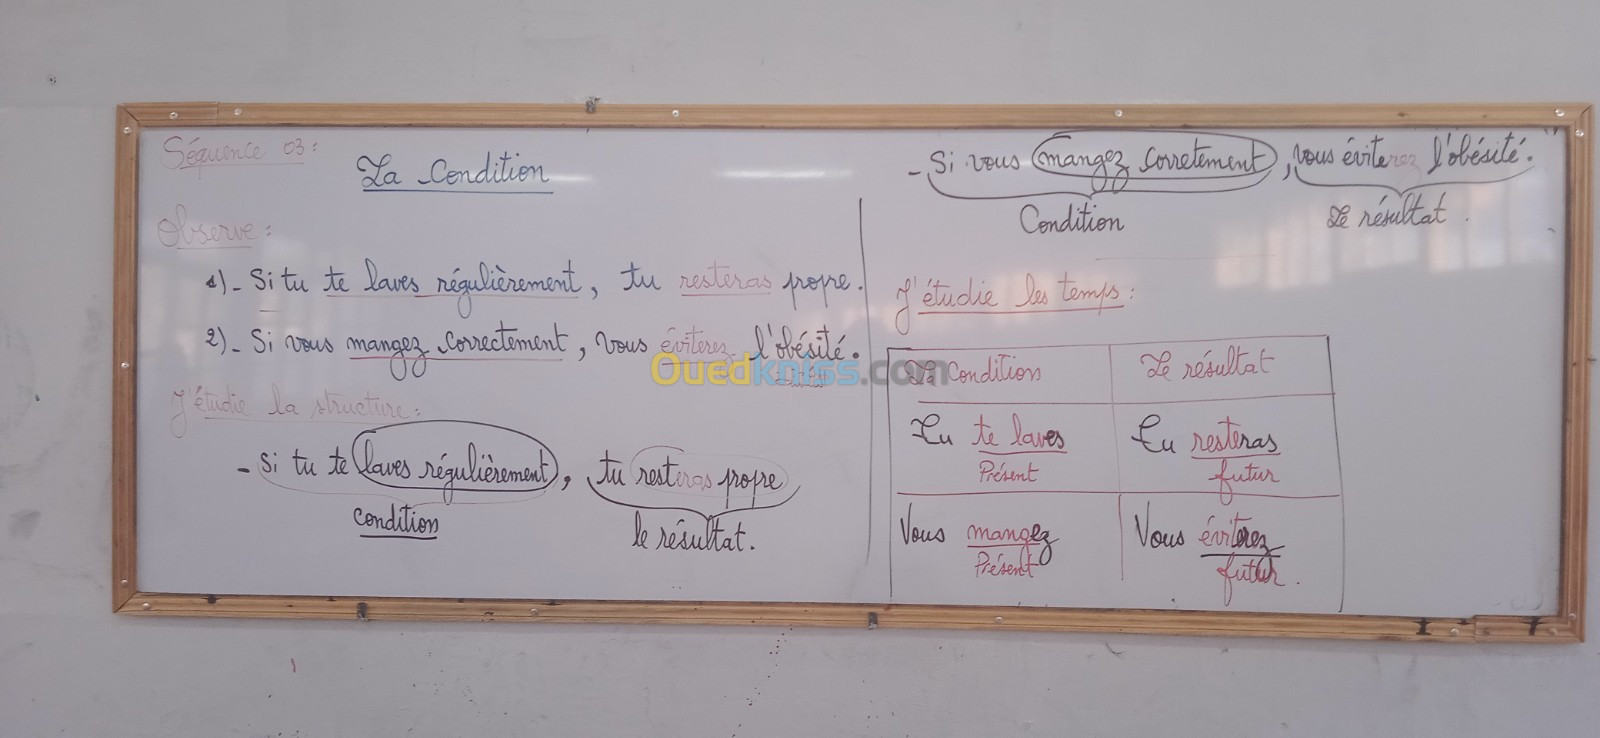 Séquence 03:
La Condition
Observe:
1)- Si tu te laves régulièrement, tu resteras propre.
2)- Si vous mangez correctement, vous éviterez l'obésité.
J'étudie la structure:
- Si tu te laves régulièrement, tu resteras propre
condition
le résultat.
- Si vous mangez corretement, vous éviterez l'obésité.
Condition
Le résultat.
J'étudie les temps:
La Condition
Le résultat
Tu te laves
Présent
Tu resteras
futur
Vous mangez
Présent
Vous éviterez
futur.
Ouedkniss.com